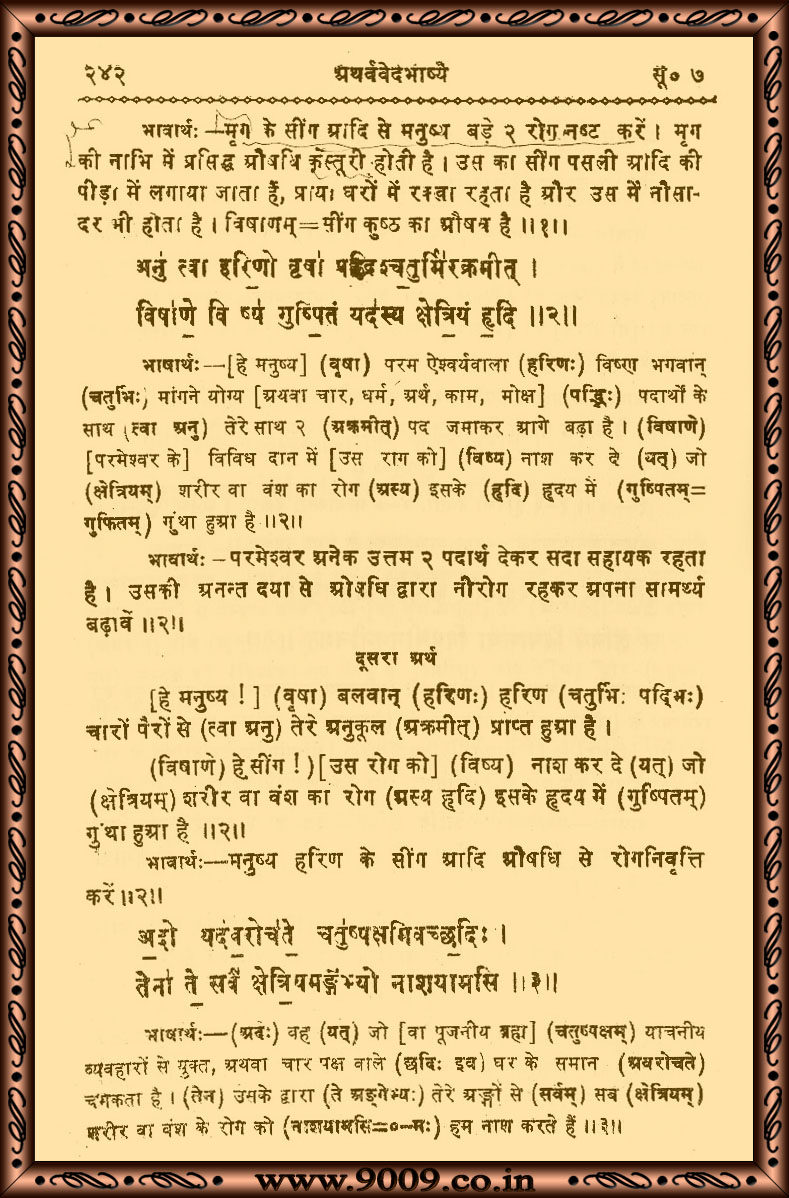 २४२ अथर्ववेदभाष्ये सू० ७
भावार्थः—मृग के सींग आदि से मनुष्य बड़े २ रोग नष्ट करें । मृग
की नाभि में प्रसिद्ध औषधि कस्तूरी होती है । उस का सींग पसली आदि की
पीड़ा में लगाया जाता है, प्रायः घरों में रक्खा रहता है और उस में नौसा-
दर भी होता है । विषाणम्=सींग कुष्ठ का औषध है ॥१॥
अनु॑ त्वा हरि॒णो वृषा॑ पद्भिश्च॒तुर्भि॑रक्रमीत् ।
विषा॑णे॒ वि ष्य॑ गुष्पि॒तं यद॑स्य क्षेत्रि॒यं हृ॒दि ॥२॥
भाषार्थः—[हे मनुष्य] (वृषा) परम ऐश्वर्यवाला (हरिणः) विष्णु भगवान्
(चतुर्भिः) मांगने योग्य [अथवा चार, धर्म, अर्थ, काम, मोक्ष] (पद्भिः) पदार्थों के
साथ (त्वा अनु) तेरे साथ २ (अक्रमीत्) पद जमाकर आगे बढ़ा है । (विषाणे)
[परमेश्वर के] विविध दान में [उस राग को] (विष्य) नाश कर दे (यत्) जो
(क्षेत्रियम्) शरीर वा वंश का रोग (अस्य) इसके (हृदि) हृदय में (गुष्पितम्=
गुफितम्) गुंथा हुआ है ॥२॥
भावार्थः–परमेश्वर अनेक उत्तम २ पदार्थ देकर सदा सहायक रहता
है । उसकी अनन्त दया से ओषधि द्वारा नीरोग रहकर अपना सामर्थ्य
बढ़ावें ॥२॥
दूसरा अर्थ
[हे मनुष्य !] (वृषा) बलवान् (हरिणः) हरिण (चतुर्भिः पद्भिः)
चारों पैरों से (त्वा अनु) तेरे अनुकूल (अक्रमीत्) प्राप्त हुआ है ।
(विषाणे) हे सींग !) [उस रोग को] (विष्य) नाश कर दे (यत्) जो
(क्षेत्रियम्) शरीर वा वंश का रोग (अस्य हृदि) इसके हृदय में (गुष्पितम्)
गुंथा हुआ है ॥२॥
भावार्थः—मनुष्य हरिण के सींग आदि औषधि से रोगनिवृत्ति
करें ॥२॥
अ॒दो यद॑व॒रोच॑ते॒ चतु॑ष्पक्षमिवच्छ॒दिः ।
तेना॑ ते॒ सर्वं॑ क्षेत्रि॒यमङ्गे॑भ्यो नाशयामसि ॥३॥
भाषार्थः—(अदः) वह (यत्) जो [वा पूजनीय ब्रह्म] (चतुष्पक्षम्) याचनीय
व्यवहारों से युक्त, अथवा चार पक्ष वाले (छदिः इव) घर के समान (अवरोचते)
चमकता है । (तेन) उसके द्वारा (ते अङ्गेभ्यः) तेरे अङ्गों से (सर्वम्) सब (क्षेत्रियम्)
शरीर वा वंश के रोग को (नाशयामसि=०–मः) हम नाश करते हैं ॥३॥
www.9009.co.in